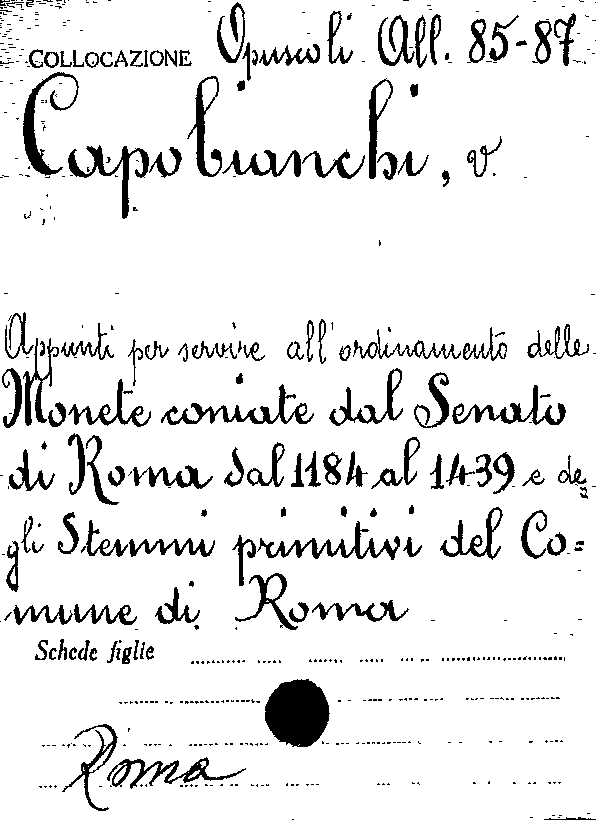 COLLOCAZIONE Opuscoli All. 85-87
Capobianchi, V.
Appunti per servire all'ordinamento delle
Monete coniate dal Senato
di Roma dal 1184 al 1439 e de=
gli Stemmi primitivi del Co=
mune di Roma
Schede figlie
Roma